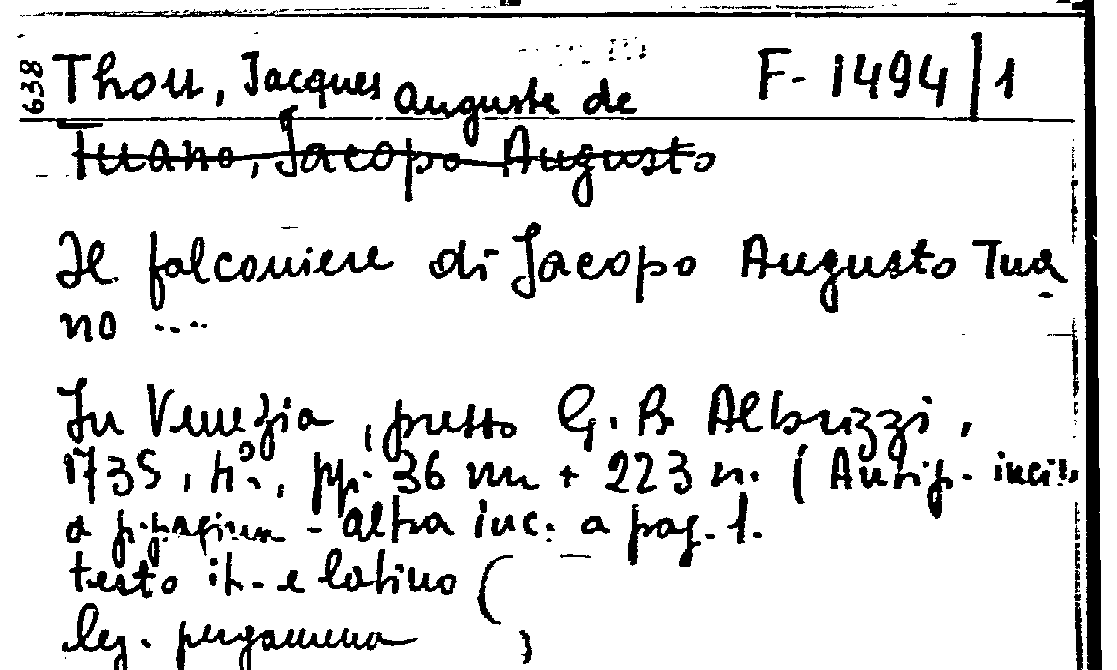 638 Thou, Jacques Auguste de F-1494/1
Tuano, Jacopo Augusto
Il falconiere di Jacopo Augusto Tua
no ....
In Venezia, presso G. B. Albrizzi,
1735, 4°., pp. 36 nn + 223 n. (Antip. incis.
a p. pagina - altra inc. a pag. 1.
testo it. e latino (
leg. pergamena )